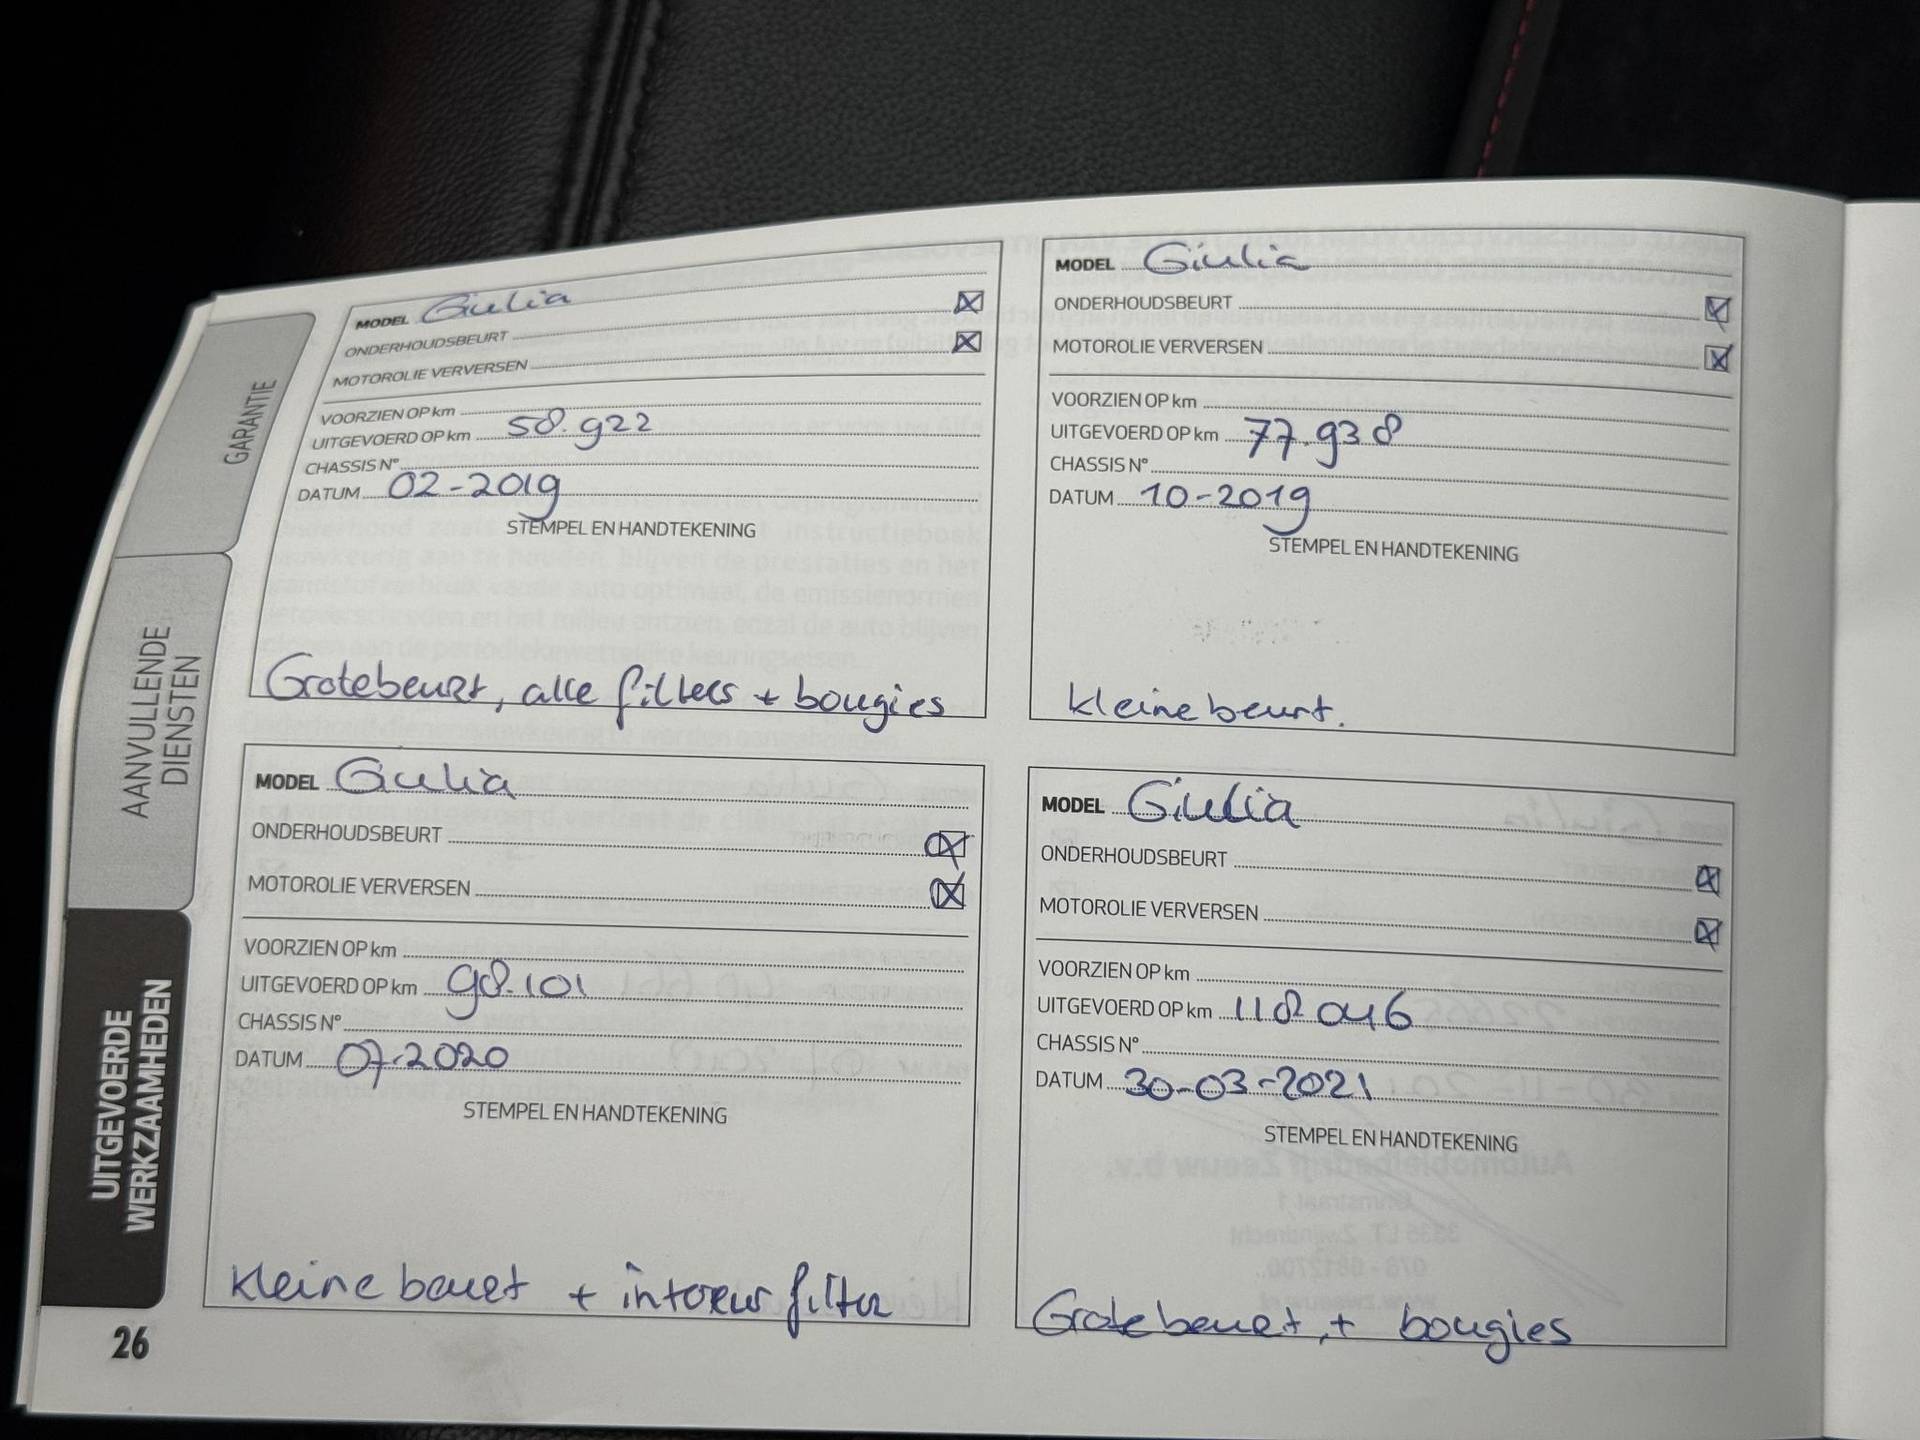 GARANTIE
AANVULLENDE
DIENSTEN
UITGEVOERDE
WERKZAAMHEDEN
26
MODEL Giulia
ONDERHOUDSBEURT
MOTOROLIE VERVERSEN
VOORZIEN OP km
UITGEVOERD OP km 58.922
CHASSIS N°
DATUM 02-2019
STEMPEL EN HANDTEKENING
Grotebeurt, alle filters + bougies
MODEL Giulia
ONDERHOUDSBEURT
MOTOROLIE VERVERSEN
VOORZIEN OP km
UITGEVOERD OP km 77.938
CHASSIS N°
DATUM 10-2019
STEMPEL EN HANDTEKENING
kleine beurt.
MODEL Giulia
ONDERHOUDSBEURT
MOTOROLIE VERVERSEN
VOORZIEN OP km
UITGEVOERD OP km 98.101
CHASSIS N°
DATUM 07-2020
STEMPEL EN HANDTEKENING
kleine beurt + interieur filter
MODEL Giulia
ONDERHOUDSBEURT
MOTOROLIE VERVERSEN
VOORZIEN OP km
UITGEVOERD OP km 118.046
CHASSIS N°
DATUM 30-03-2021
STEMPEL EN HANDTEKENING
Grote beurt, + bougies